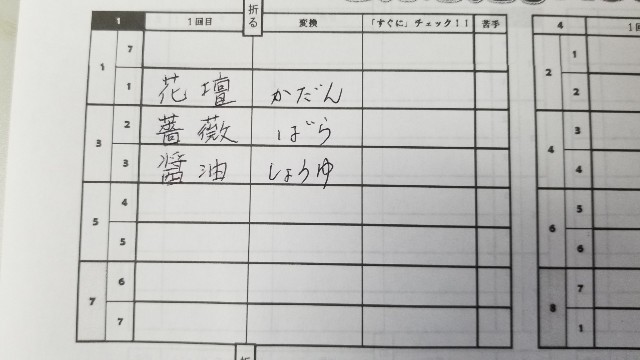 折る
1 1回目 変換 「すぐに」チェック!! 苦手
1 7
1 花壇 かだん
3 2 薔薇 ばら
3 醤油 しょうゆ
5 4
5
7 6
7
4 1回
2 1
2
4 3
4
6 5
6
8 7
1